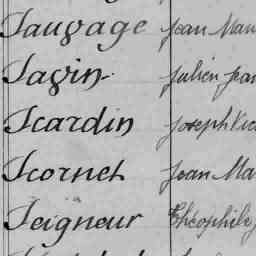 Sauvage Jean Mari
Savin Julien Jean
Scardin Joseph Vic
Scornet Jean Ma
Seigneur Théophile